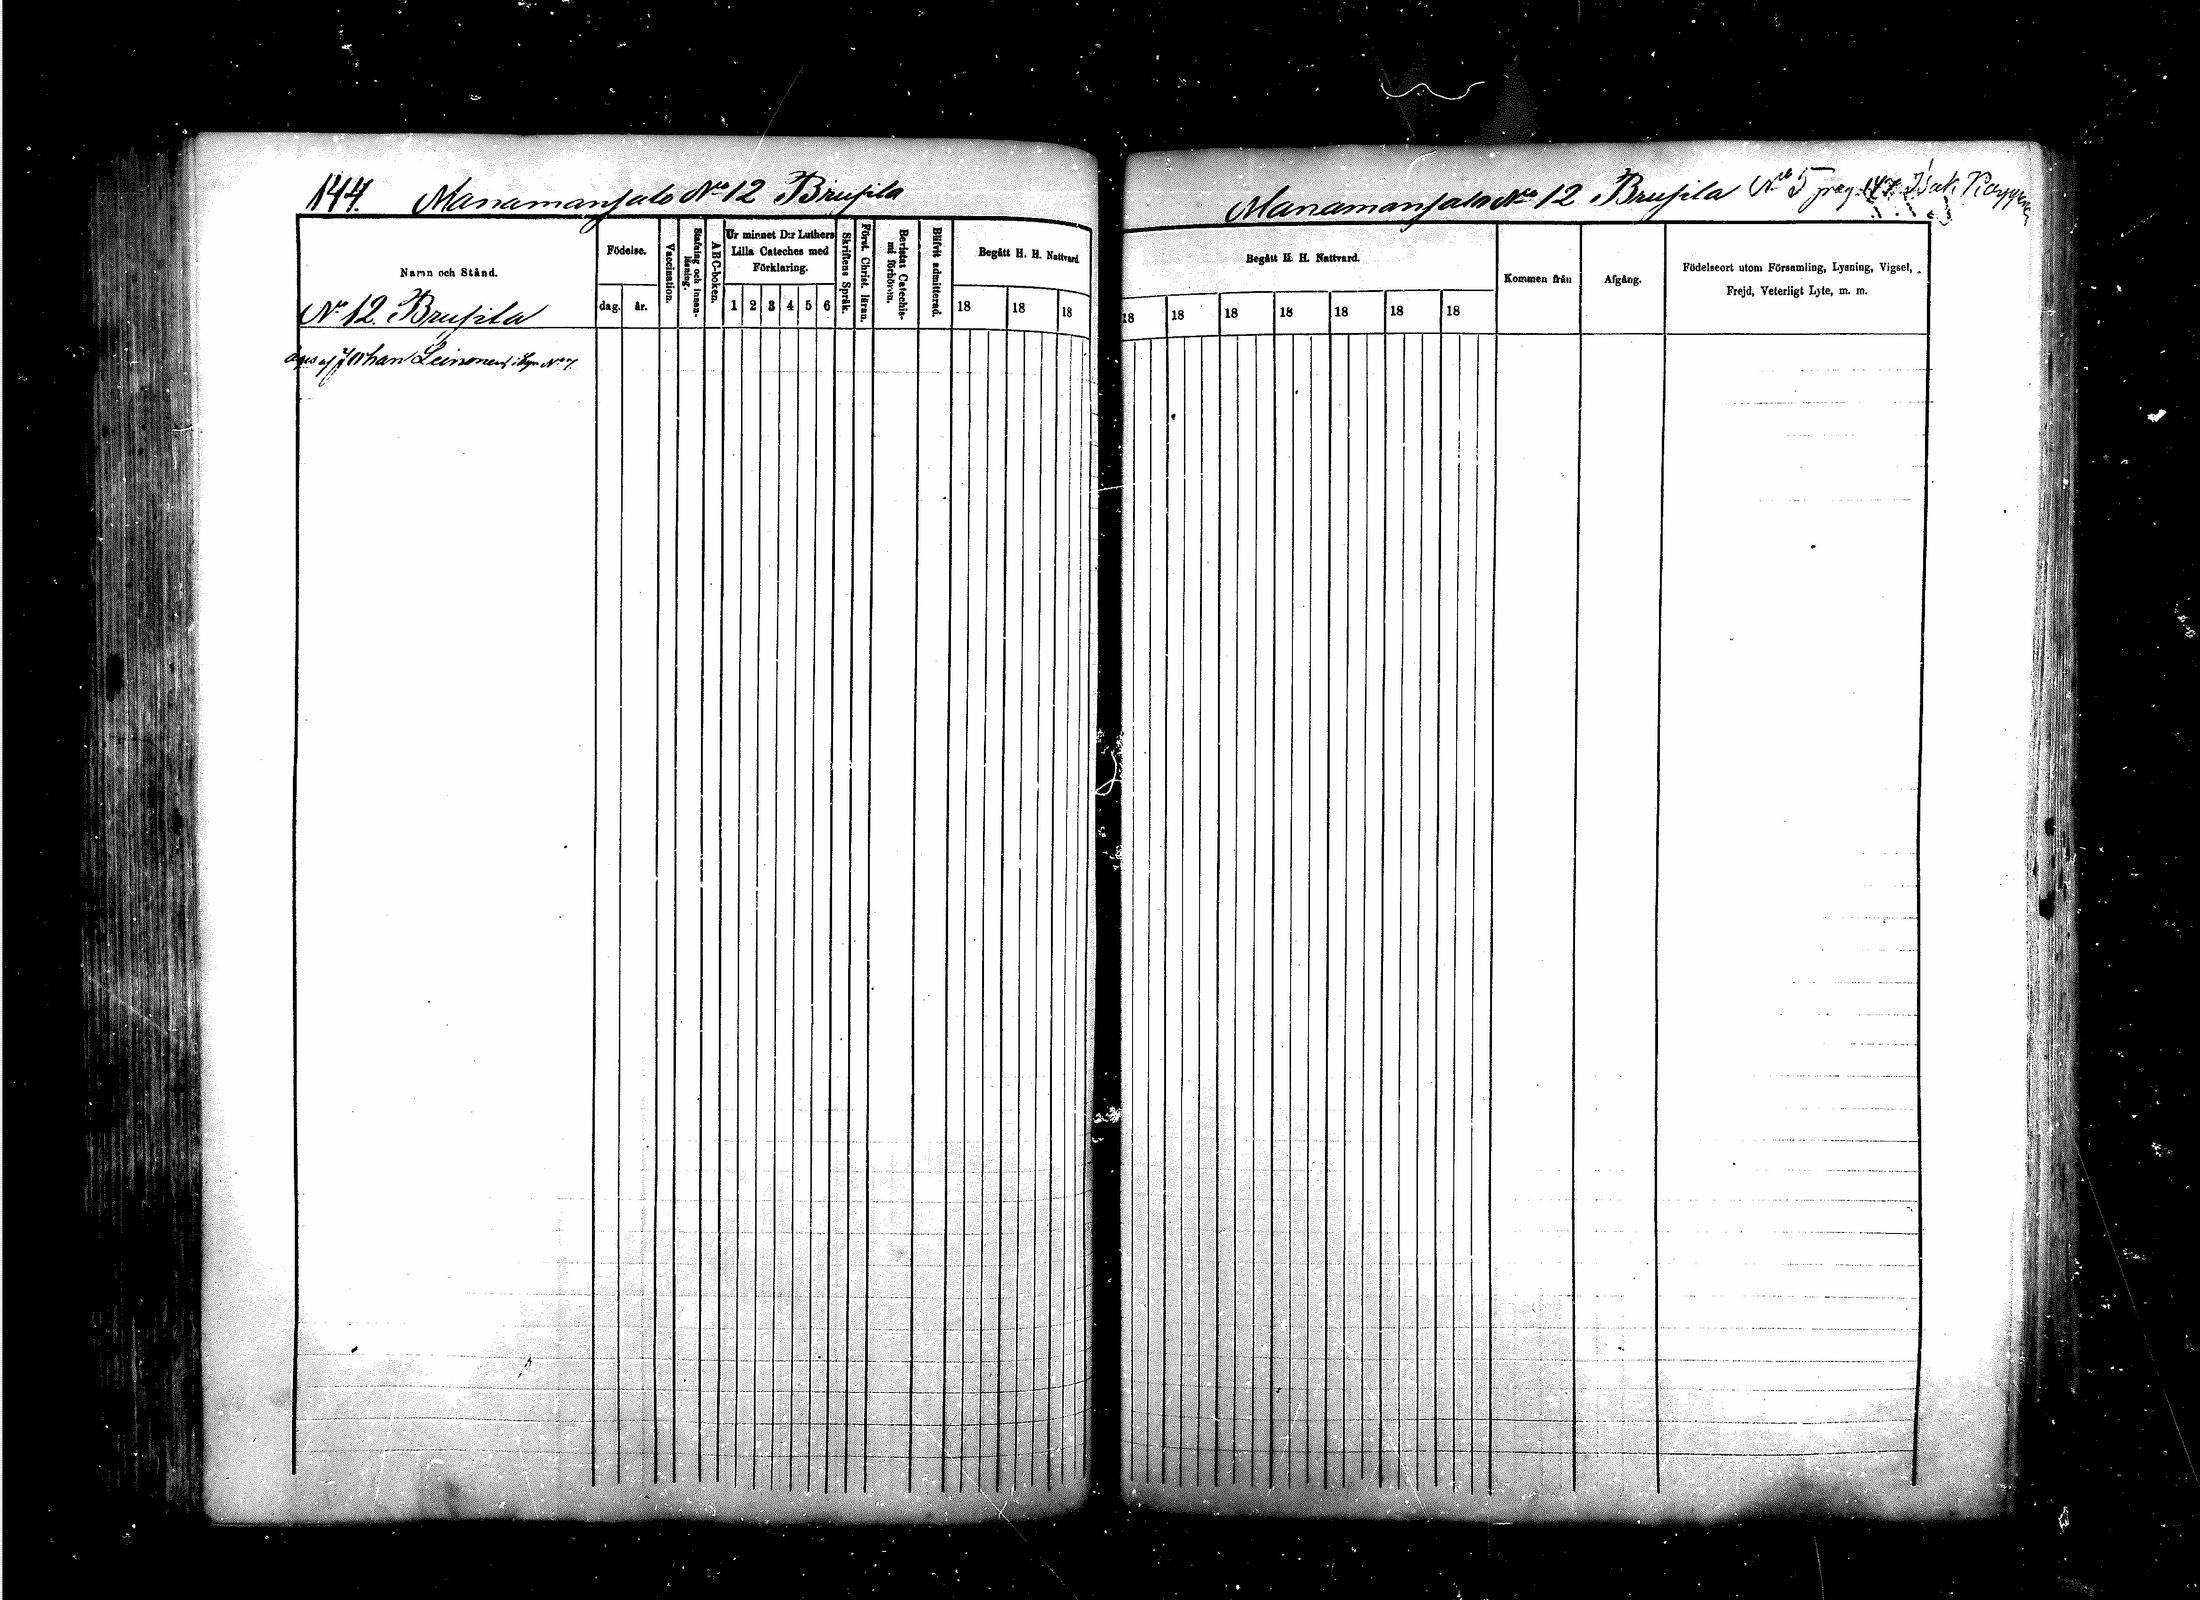 144. Manamansalo No 12 Brusila
Namn och Stånd.
Födelse.
dag. år.
Vaccination.
Stafning och innan-
läsning.
ABC-boken.
Ur minnet D:r Luthers
Lilla Cateches med
Förklaring.
1 2 3 4 5 6
Skriftens Språk.
Först. Christ. läran.
Bevistat Catechis-
mi förhören.
Blifvit admitterad.
Begått H. H. Nattvard
18 18 18
No 12. Brusila
äges af Johan Leinonen i No 7.
Manamansalo No 12 Brusila No 5 pag. 147. Isak
Begått H. H. Nattvard.
18 18 18 18 18 18 18
Kommen från
Afgång.
Födelseort utom Församling, Lysning, Vigsel,
Frejd, Veterligt Lyte, m. m.